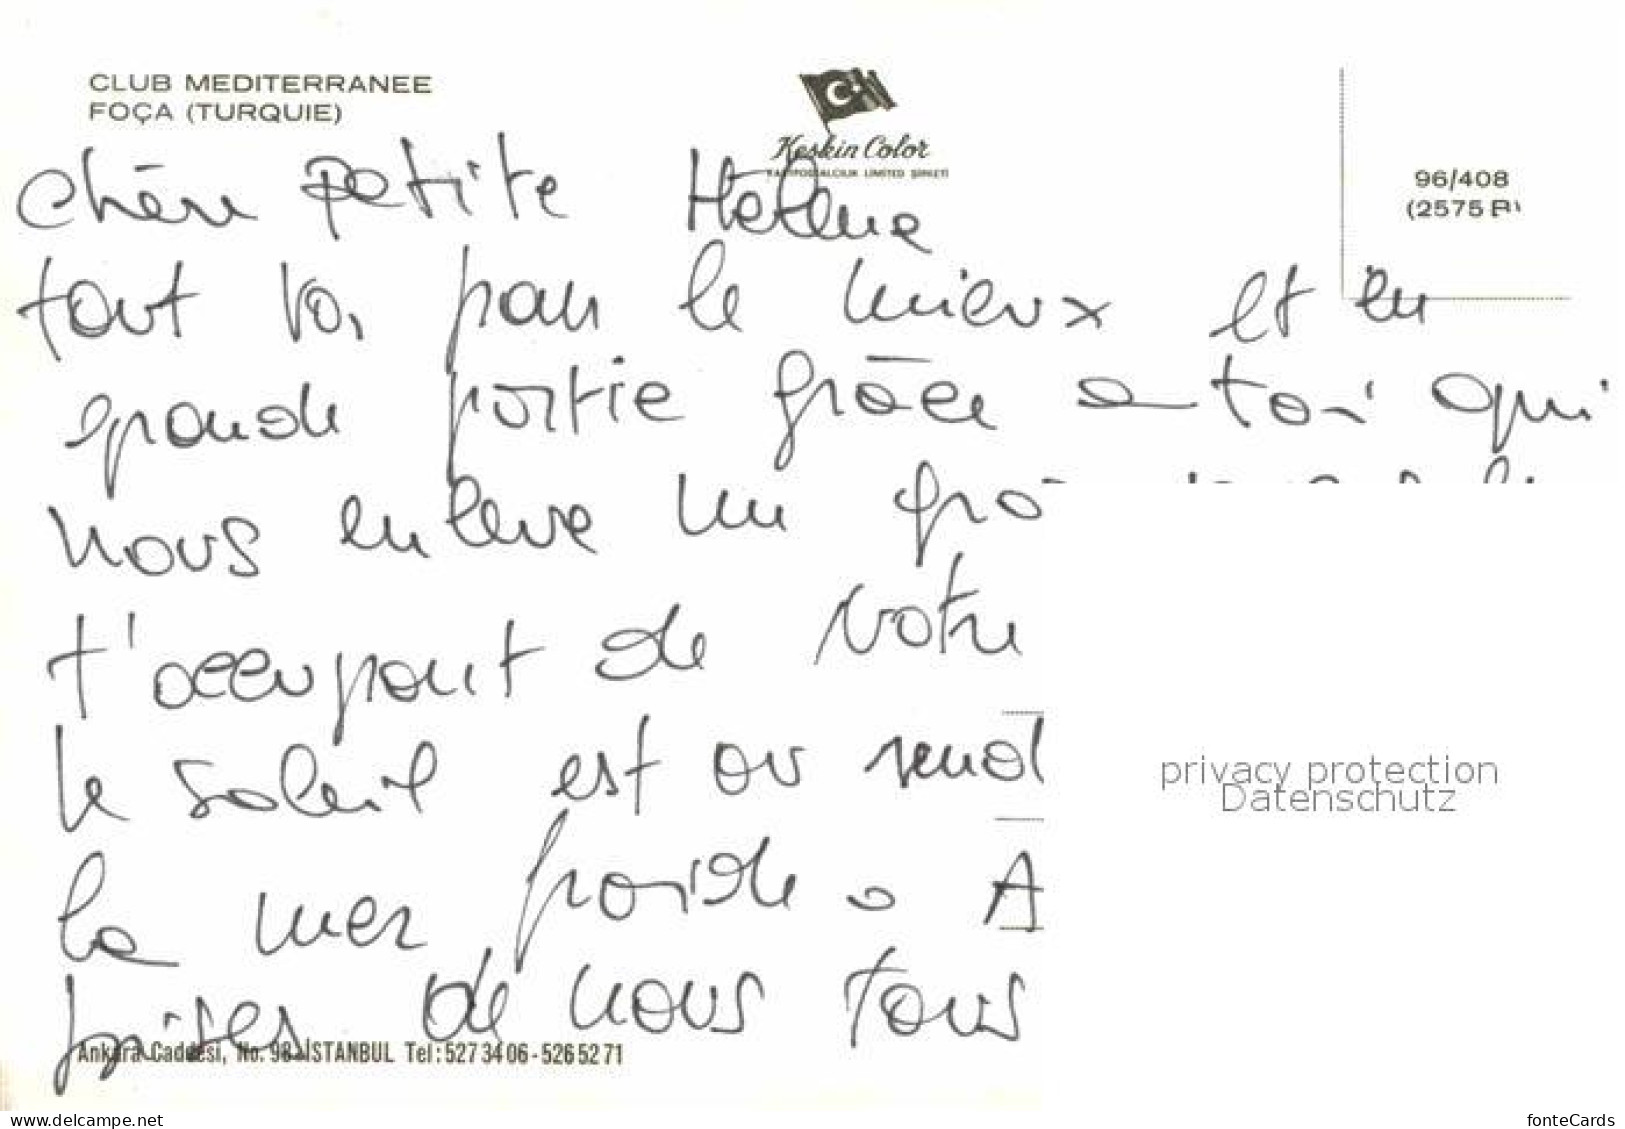 CLUB MEDITERRANEE
FOÇA (TURQUIE)
Keskin Color
KARTPOSTALCILIK LIMITED ŞİRKETİ
96/408
(2575 B)
Chère petite Hélène
tout va pour le mieux et en
grande partie grâce a toi qui
nous enleve un gro
t'occupant de votre
le soleil est au rend
la mer froide. A
bises de nous tous
Ankara Caddesi, No. 98-İSTANBUL Tel: 527 34 06 - 526 52 71
privacy protection
Datenschutz
www.delcampe.net
fonteCards